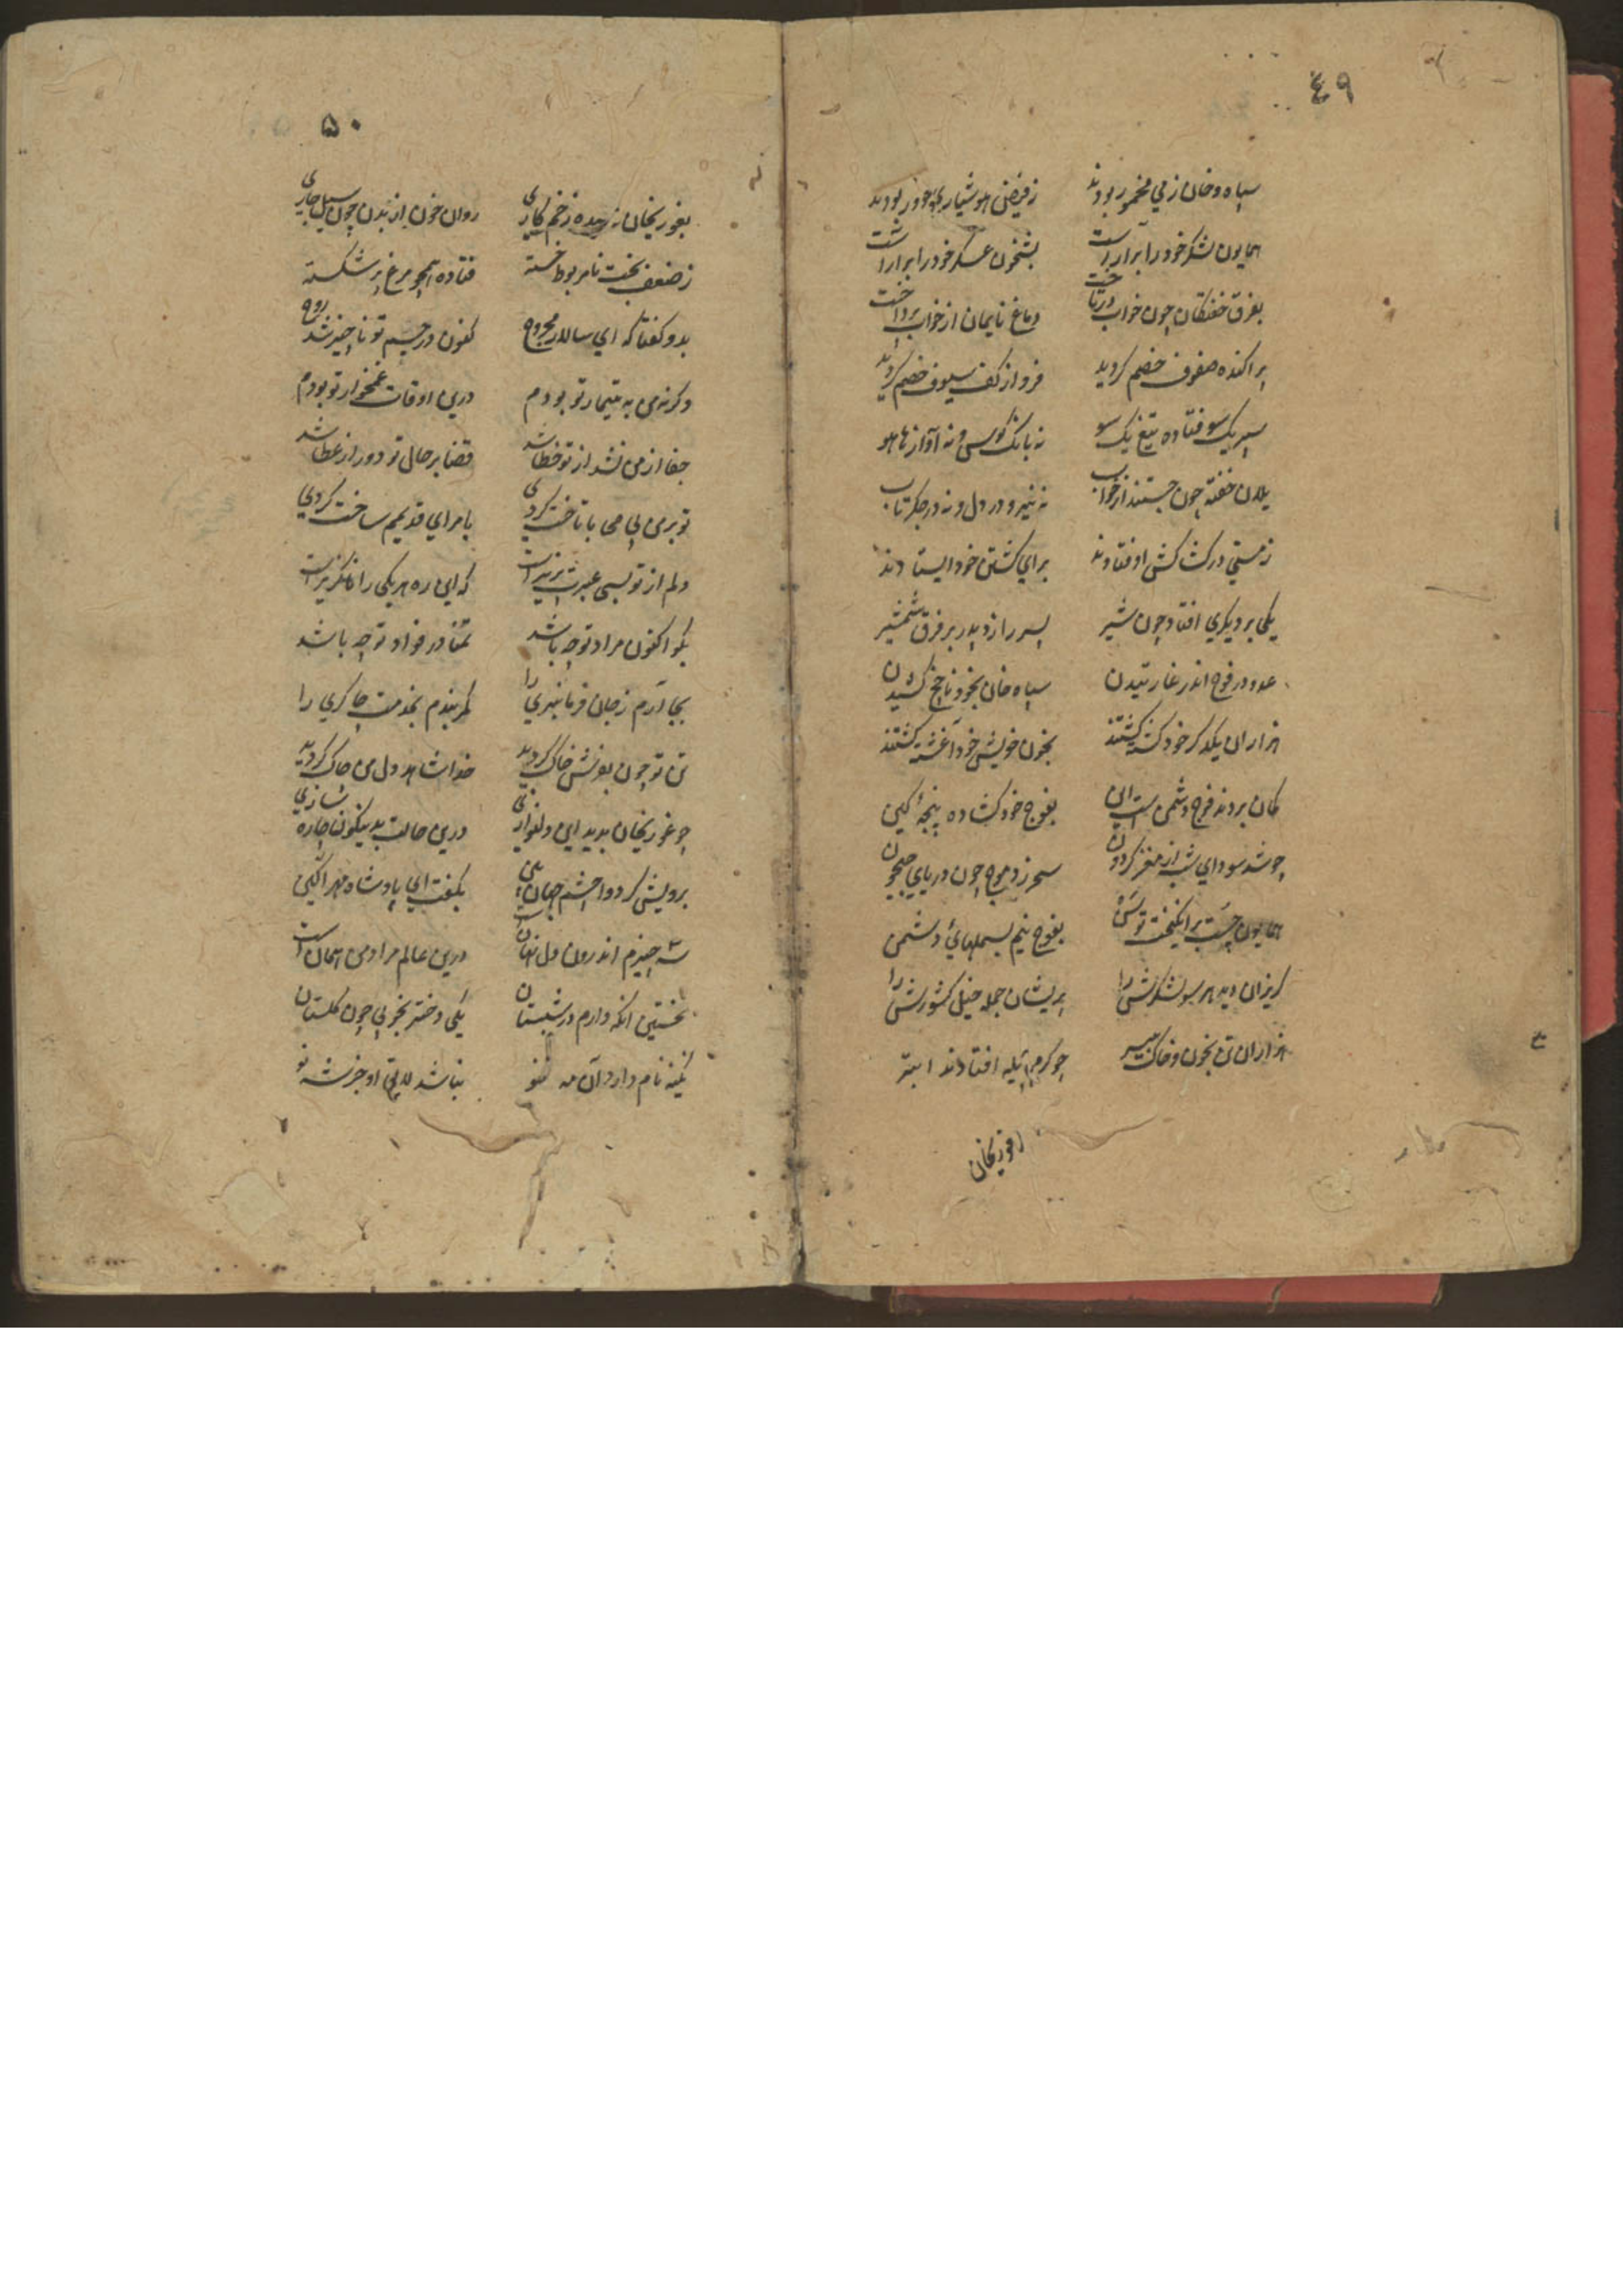 ٤٩
سپاه و خان ز می مخمور بودند ز فیض هوشیاری دور بودند
همایون لشکر خود را برآراست بشبخون عسکر خود را برآراست
بفرق خفتگان چون خواب در تاخت دماغ نایمان از خواب پرداخت
پراکنده صفوف خصم گردید فرو از کف سیوف خصم گردید
سپر یک سو فتاده تیغ یک سو نه بانگ کوس و نه آواز هاهو
یلان خفته چون جستند از خواب نه نیرو در دل و نه در جگر تاب
ز مستی در کشاکش اوفتادند برای کشتن خود ایستادند
یکی بر دیگری افتاد چون شیر پسر را زد پدر بر فرق شمشیر
عدو در فوج اندر غارتیدن سپاه خان بخود ناچخ کشیدن
هزاران یکدگر خود کشته کشتند بخون خویش خود آغشته کشتند
گمان بردند فوج دشمن است این بفوج خود گشاده پنجهٔ کین
چو شد سودای شب از مغز گردون سحر زد موج چون دریای جیحون
همایون چست برانگیخت توسن بفوج نیم بسملهای دشمن
گریزان دید هر سو لشکرش را پریشان جمله خیل کشورش را
هزاران تن بخون و خاک چو کرم پیله افتادند ابتر
۵۰
بغوریخان زخم کاری روان خون از بدن چون سیل جاری
ز ضعف بخت نامربوط خسته فتاده همچو مرغ پر شکسته
بدو گفتا که ای سالار مجروح کنون در جسم تو ناچیز شد روح
وگرنه من به تیمار تو بودم درین اوقات غمخوار تو بودم
جفا از من نشد از تو خطا شد قضا بر حال تو دور از عطا شد
تو بر من بی محابا تاخت کردی بامرای قدیمم ساخت کردی
دلم از تو بسی عبرت پذیر است که این ره هر یکی را ناگزیر است
بگو اکنون مراد تو چه باشد تمنا در فواد تو چه باشد
بجا آرم ز جان فرمانبری را کمر بندم بخدمت چاکری را
تن تو چون بخونش خاک گردید خدا شاهد دل من چاک گردید
چو غوریخان بدید این دلنوازی درین حالت بدینگونه چاره سازی
برویش کرد وا چشم جهان بین بگفت ای پادشاه مهر آگین
سه چیزم اندرون دل نهان است درین عالم مراد من همان است
نخستین آنکه دارم در شبستان یکی دختر بخوبی چون گلستان
نگینه نام دارد آن مه نو نباشد لایق او جز شه نو